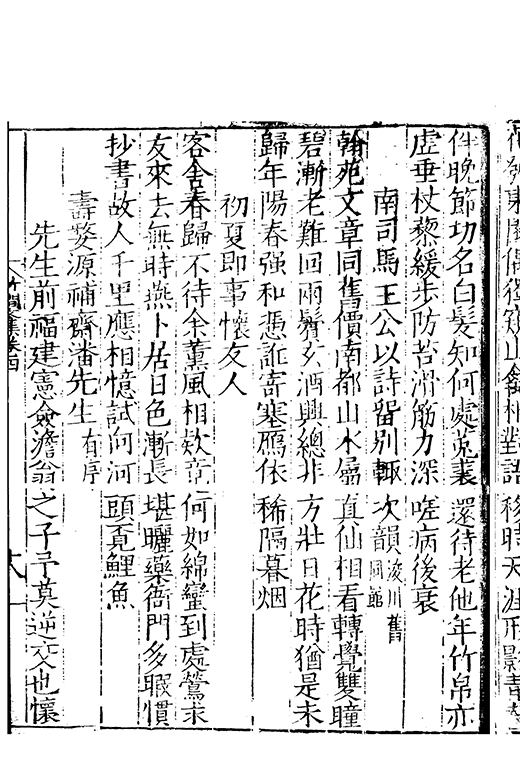 件晚節功名白髪知何處菟裘 還待老他年竹帛亦
虚垂杖藜緩步防苔滑筋力深 嗟病後衰
南司馬王公以詩留別輙次韻 浚川舊同館
翰苑文章同舊價南都山水屬 真仙相看轉覺雙瞳
碧漸老難回兩鬢玄酒興總非 方壯日花時猶是未
歸年陽春强和憑誰寄塞鴈依 稀隔暮烟
初夏即事懷友人
客舍春歸不待余薰風相欵意 何如綿蠻到處鶯求
友來去無時燕卜居日色漸長 堪曬藥衙門多暇慣
抄書故人千里應相憶試向河 頭覔鯉魚
壽婺源補齋潘先生 有序
先生前福建憲僉澹翁之子予莫逆交也懷
卷四